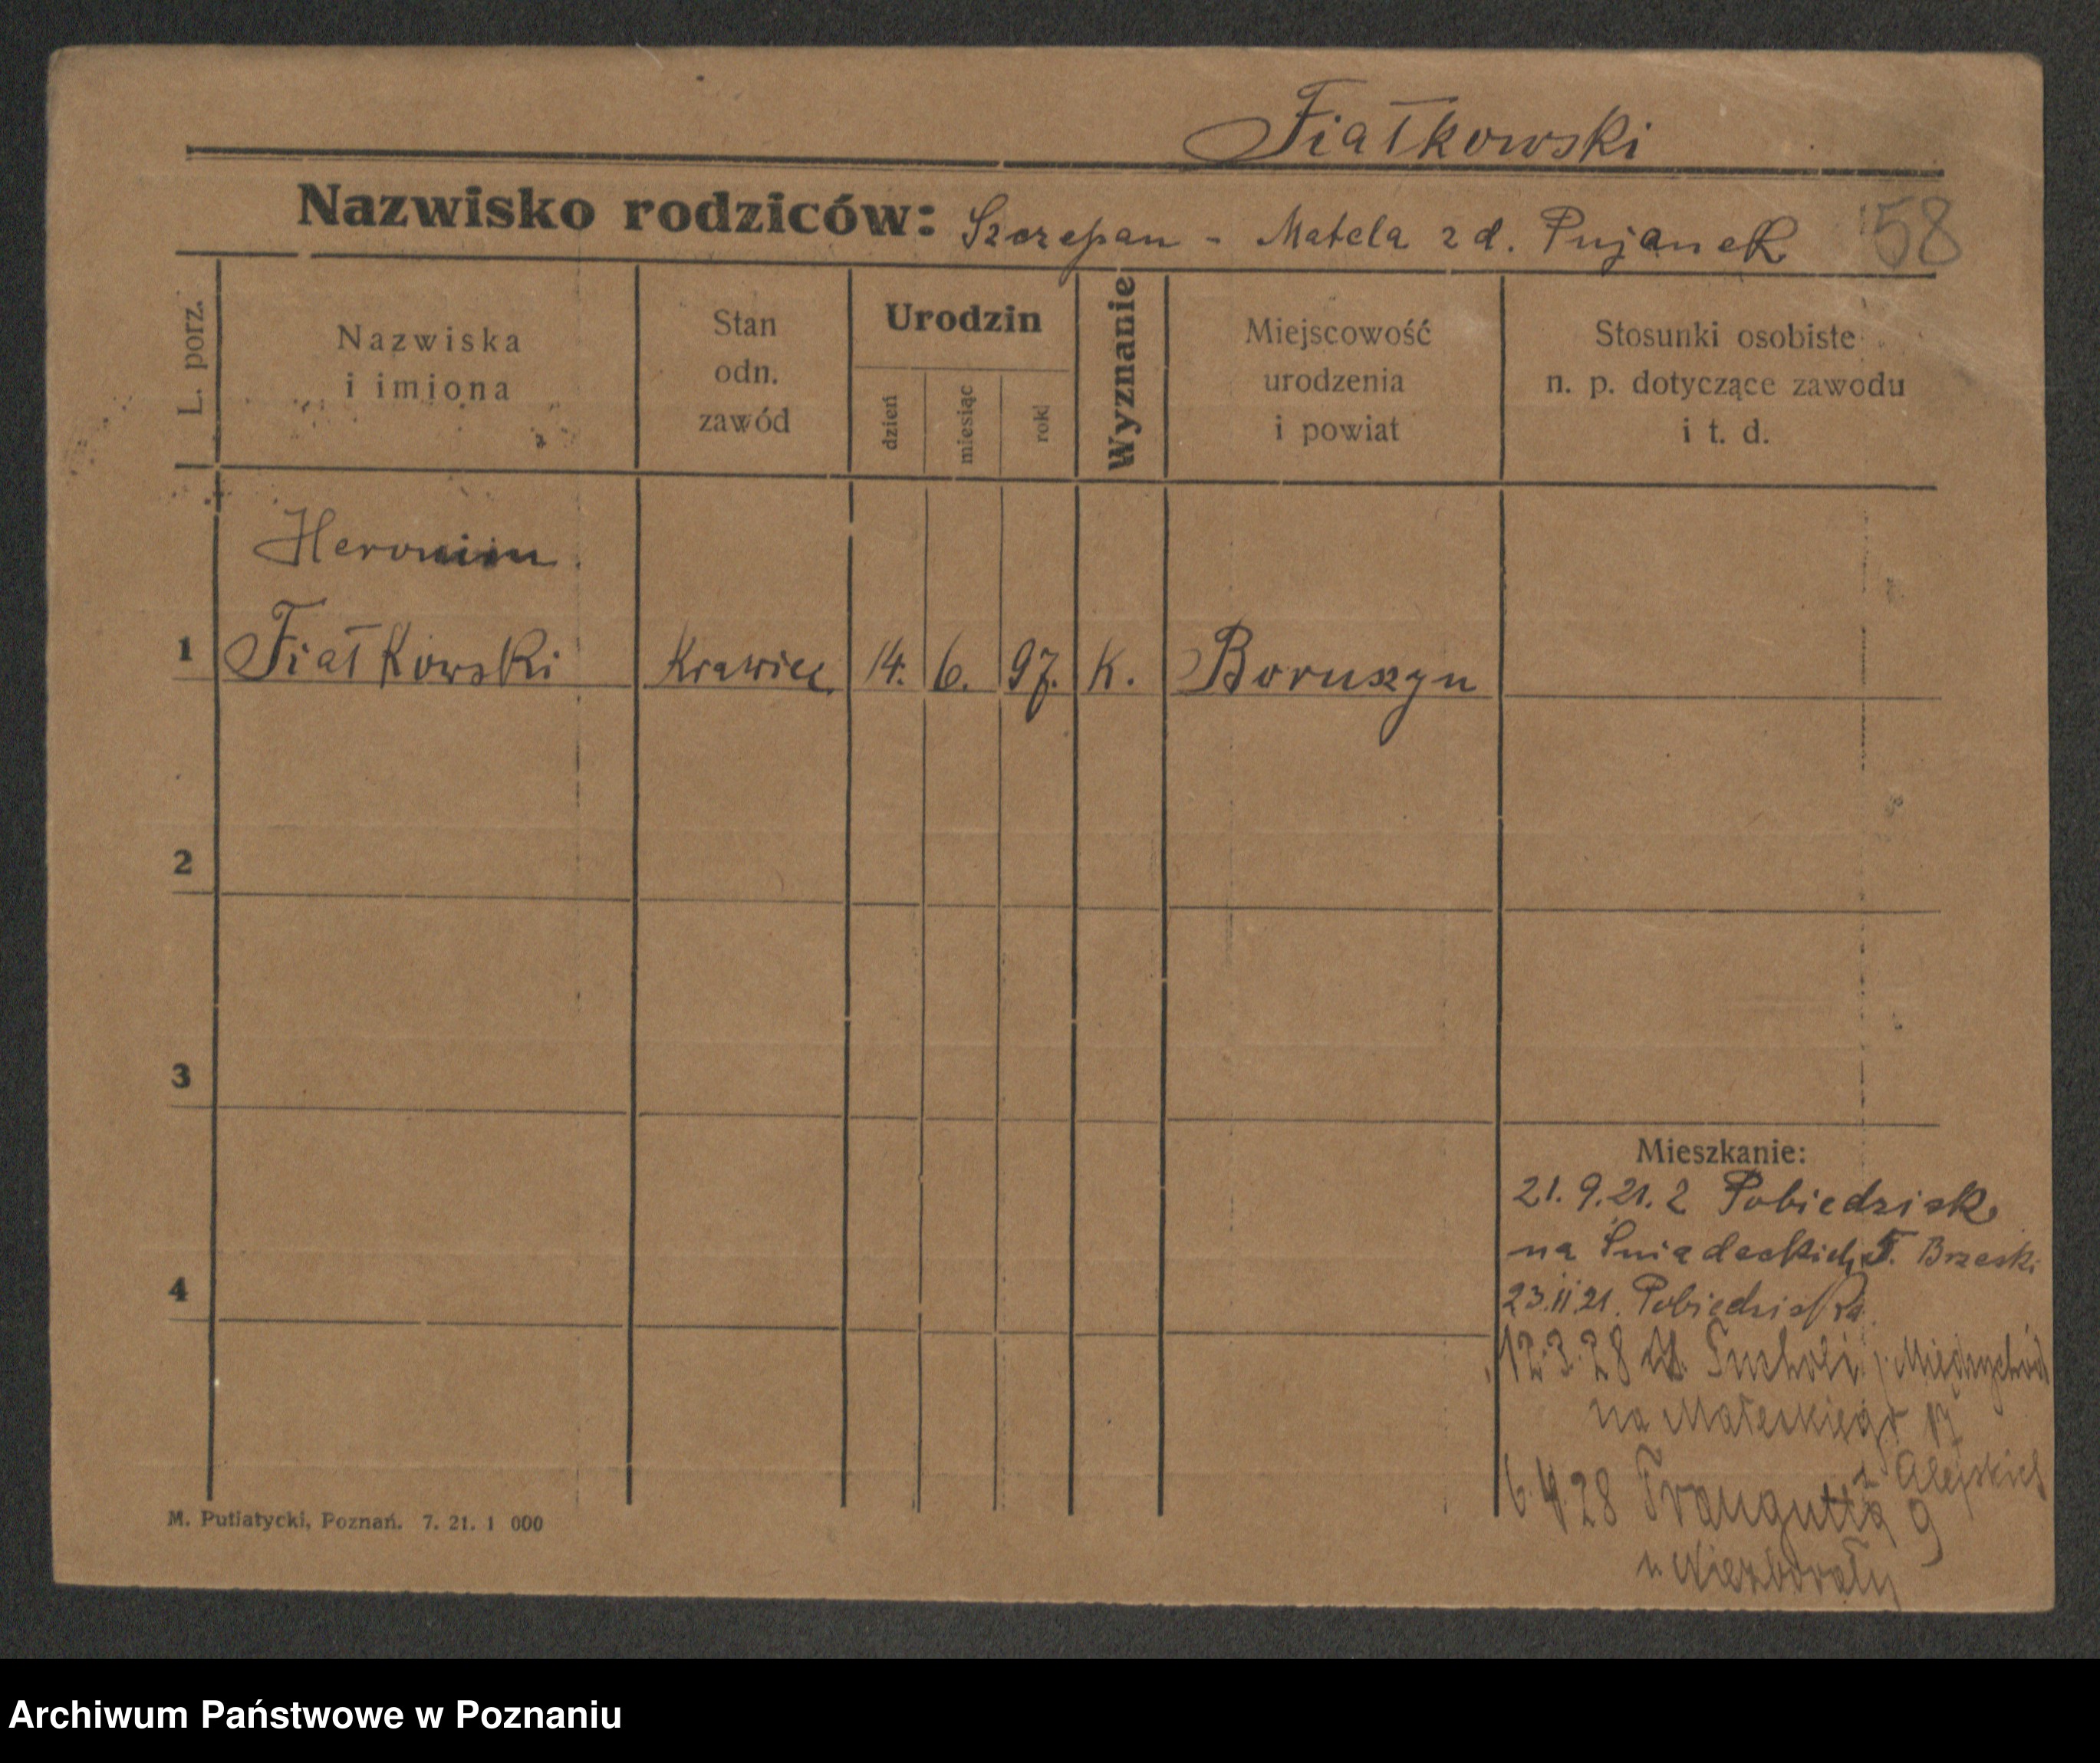 Fiatkowski
Nazwisko rodziców: Szczepan - Matela z d. Pujanek 58
L. porz.
Nazwiska
i imiona
Stan
odn.
zawód
Urodzin
dzień
miesiąc
rok
Wyznanie
Miejscowość
urodzenia
i powiat
Stosunki osobiste
n. p. dotyczące zawodu
i t. d.
Heronim
1 Fiatkowski Krawiec 14. 6. 97. K. Boruszyn
2
3
Mieszkanie:
21. 9. 21. z Pobiedzisk
na Śniadeckich 5. Brzeski
23.11.21. Pobiedziska
4
12.3.28 Międzychód
na 17
6.4.28 Traugutta 9
u Niezborały
M. Putiatycki, Poznań. 7. 21. 1 000
Archiwum Państwowe w Poznaniu